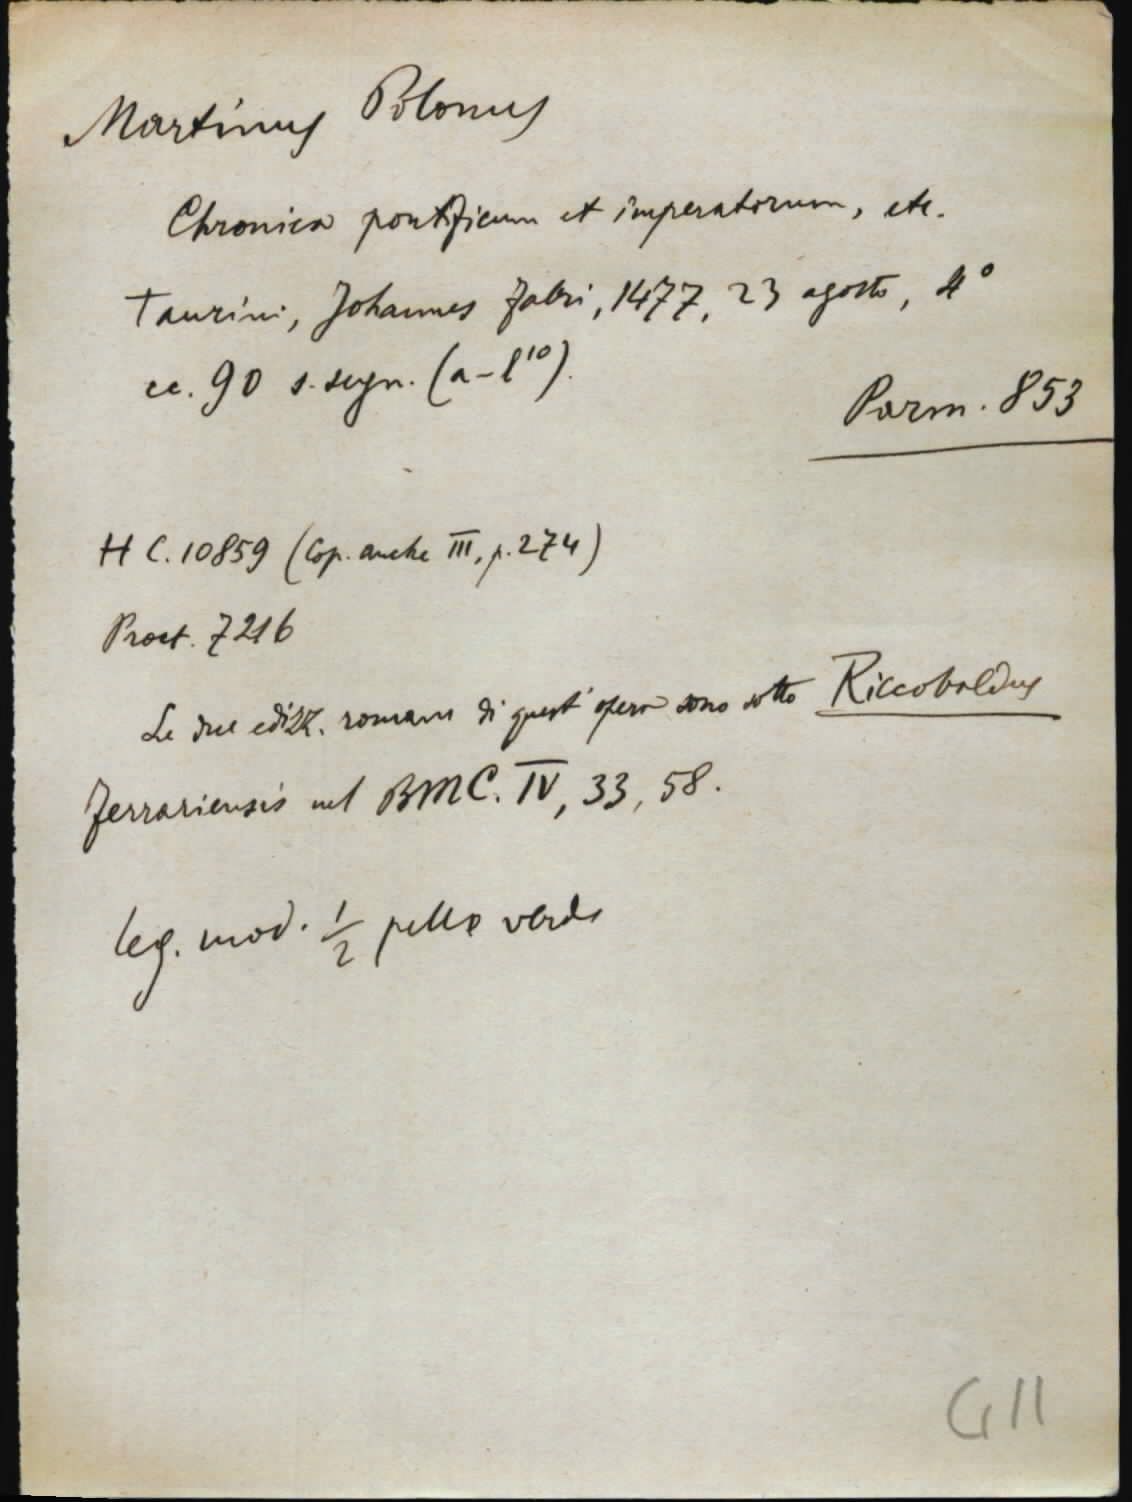 Martinus Polonus
Chronica pontificum et imperatorum, etc.
Taurini, Johannes Fabri, 1477, 23 agosto, 4°
cc. 90 s. segn. (a-l¹⁰).
Parm. 853
H C. 10859 (Cop. anche III, p. 274)
Proct. 7216
Le due edizz. romane di quest'opera sono sotto Riccobaldus
Ferrariensis nel BMC. IV, 33, 58.
leg. mod. ½ pelle verde
G11